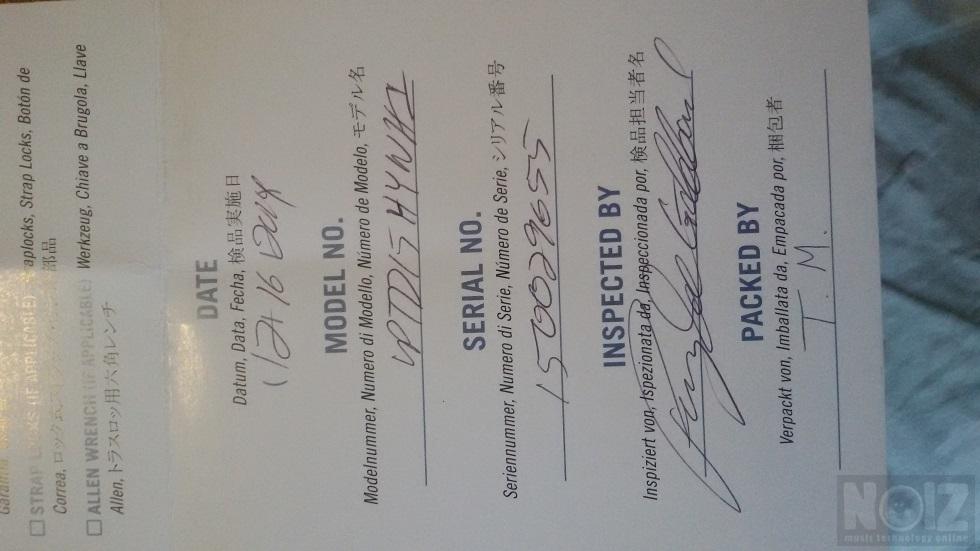 Garantía
☐ STRAP LOCKS (IF APPLICABLE) Straplocks, Strap Locks, Botón de
Correa, ロック式ストラップ 部品
☐ ALLEN WRENCH (IF APPLICABLE) Werkzeug, Chiave a Brugola, Llave
Allen, トラスロッド用六角レンチ
DATE
Datum, Data, Fecha, 検品実施日
MODEL NO.
Modelnummer, Numero di Modello, Número de Modelo, モデル名
LPTD15HYNH1
SERIAL NO.
Seriennummer, Numero di Serie, Número de Serie, シリアル番号
150029655
INSPECTED BY
Inspiziert von, Ispezionata da, Inspeccionada por, 検品担当者名
PACKED BY
Verpackt von, Imballata da, Empacada por, 梱包者
T. M.
NOIZ
music technology online